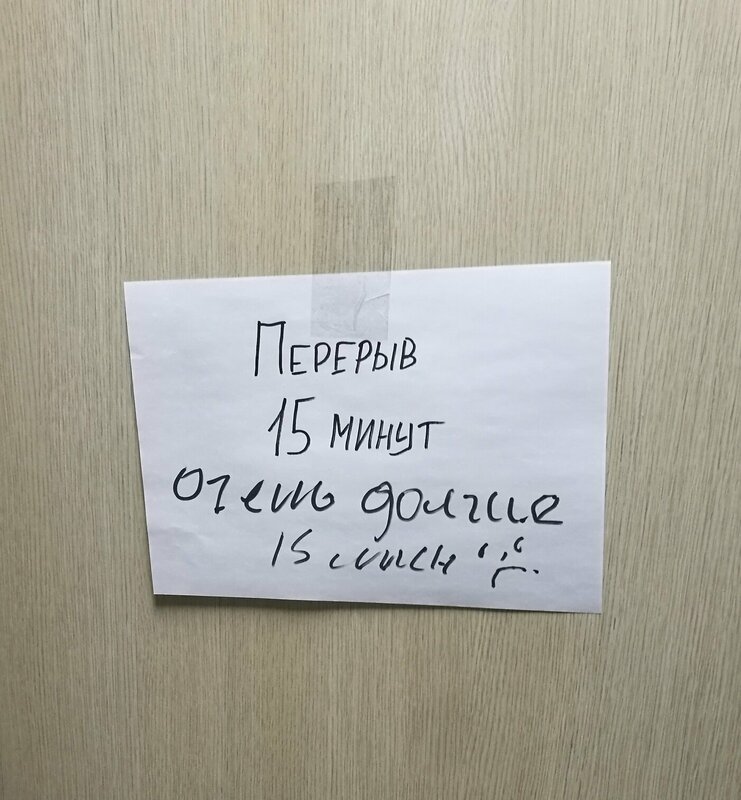 Перерыв
15 минут
очень долгие
15 мин